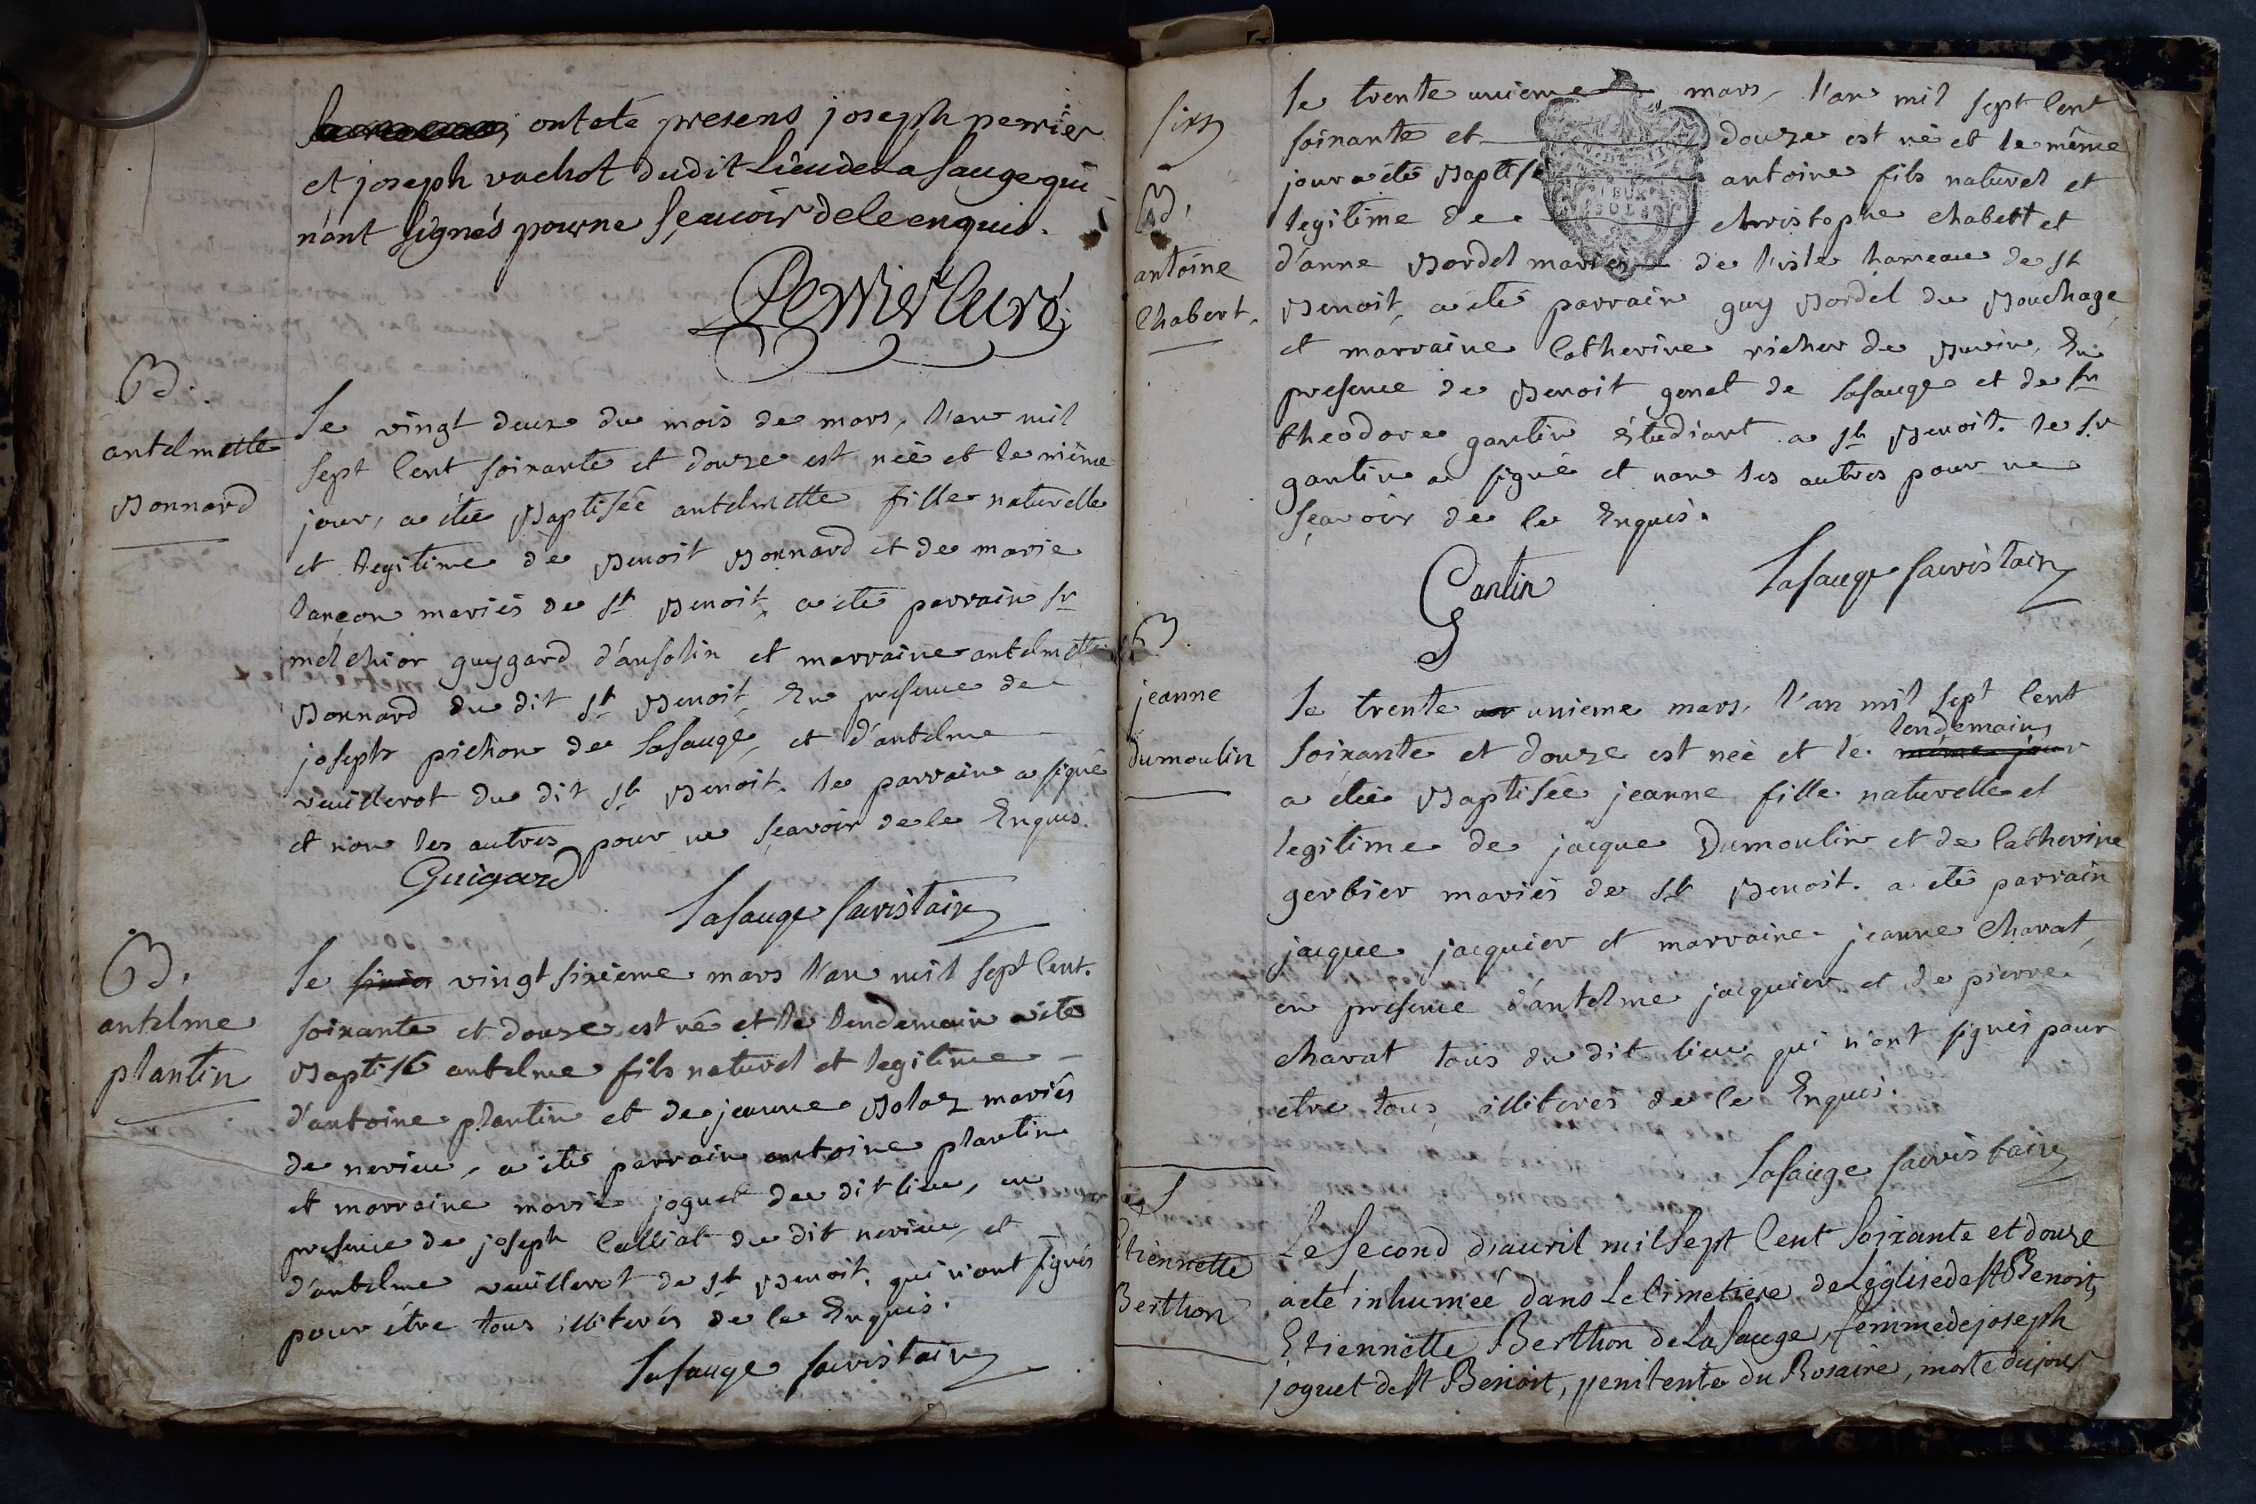 ont ete presens joseph perrier
et joseph vachot dudit lieu de La sauge qui
n'ont signés pour ne sçauoir de le enquis.
Perrier Curé
B.
antelmette
Bonnard
Le vingt deux du mois de mars, l'an mil
sept Cent soixante et douze est née et le même
jour, a été Baptisée antelmette fille naturelle
et legitime de Benoit Bonnard et de marie
lançon mariés de st Benoit, a été parrain sr
melchior guygard d'ansolin et marraine antelmette
Bonnard du dit st Benoit, En presence de
joseph pichon de Lasauge, et d'antelme
veuillerot du dit st Benoit. le parrain a signé
et non les autres pour ne sçavoir de le Enquis.
Guigard
Lasauge sacristain
B.
antelme
plantin
Le vingt sixieme mars l'an mil sept Cent
soixante et douze est né et le lendemain a été
Baptisé antelme fils naturel et legitime
d'antoine plantin et de jeanne Bolaz mariés
de nerieu, a été parrain antoine plantin
et marraine marie joguet du dit lieu, en
presence de joseph Calliat du dit nerieu, et
d'antelme veuillerot de st Benoit, qui n'ont signés
pour étre tous illiterés de le Enquis.
Lasauge sacristain
sixz
B.
antoine
Chabert.
Le trente unieme mars, l'an mil sept Cent
soixante et douze est né et le même
jour a été Baptisé antoine fils naturel et
legitime de christophe chabert et
d'anne Bordel mariés de l'isle hameau de st
Benoit, a été parrain guy Bordel du Bouchage,
et marraine Catherine richer de Buvin, En
presence de Benoit genet de Lasauge et de sr
theodore gantin étudiant a st Benoit. le sr
gantin a signé et non les autres pour ne
sçavoir de le Enquis.
Gantin
Lasauge sacristain
B
jeanne
dumoulin
Le trente unieme mars, l'an mil sept Cent
lendemain
soixante et douze est née et le même jour
a été Baptisée jeanne fille naturelle et
legitime de jacque Dumoulin et de Catherine
gerbier mariés de st Benoit. a été parrain
jacque jacquier et marraine jeanne Charat,
en presence d'antelme jacquier et de pierre
charat tous du dit lieu qui n'ont signés pour
etre tous illiterés de le Enquis.
Lasauge sacristain
S
Etiennette
Berthon
Le second d'auril mil sept Cent soixante et douze
a eté inhumée dans le Cimetiere de L'église de st Benoit,
Etiennette Berthon de La sauge, femme de joseph
joguet de st Benoit, penitente du Rosaire, morte du jour